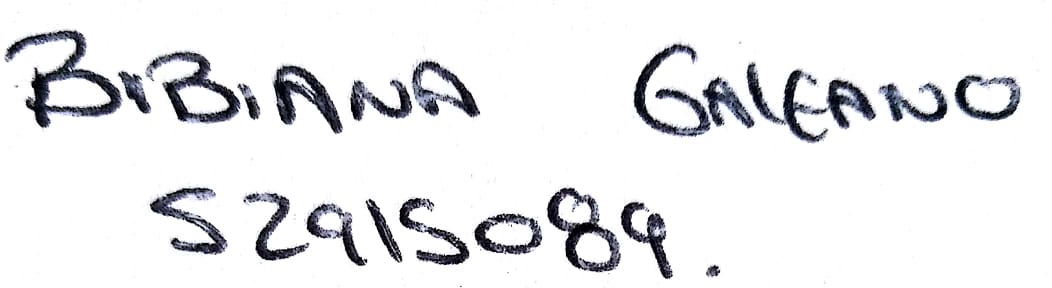 BiBiANA GALEANO
52915089.